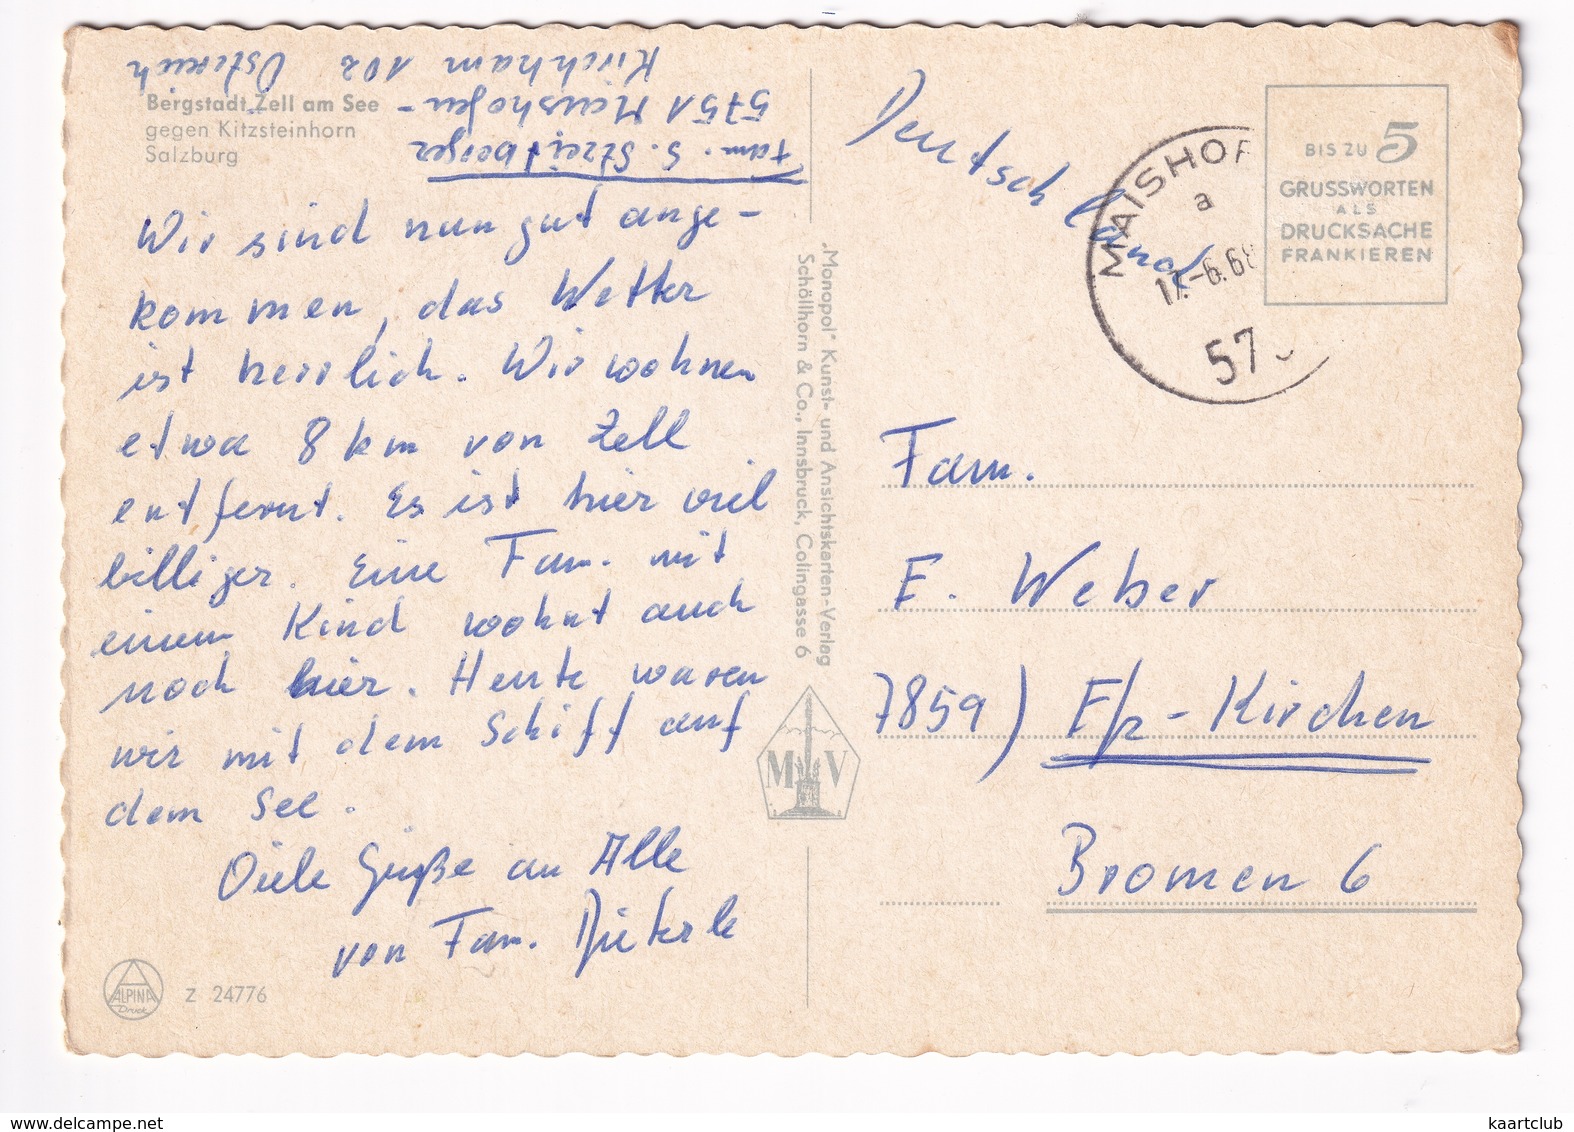 Fam. S. Streitberger
5751 Maishofen -
Kirchham 102 Östereich
Bergstadt Zell am See
gegen Kitzsteinhorn
Salzburg
Wir sind nun gut ange-
kommen, das Wetter
ist herrlich. Wir wohnen
etwa 8 km von Zell
entfernt. Es ist hier viel
billiger. Eine Fam. mit
einem Kind wohnt auch
noch hier. Heute waren
wir mit dem Schiff auf
dem See.
Viele Grüße an Alle
von Fam. Dieterle
ALPINA
Druck
Z 24776
„Monopol" Kunst- und Ansichtskarten-Verlag
Schöllhorn & Co., Innsbruck, Colingasse 6
M V
Deutschland
MAISHOF
a
17.-6.68
57
BIS ZU 5
GRUSSWORTEN
ALS
DRUCKSACHE
FRANKIEREN
Fam.
F. Weber
7859) Efr-Kirchen
Bromen 6
www.delcampe.net
kaartclub